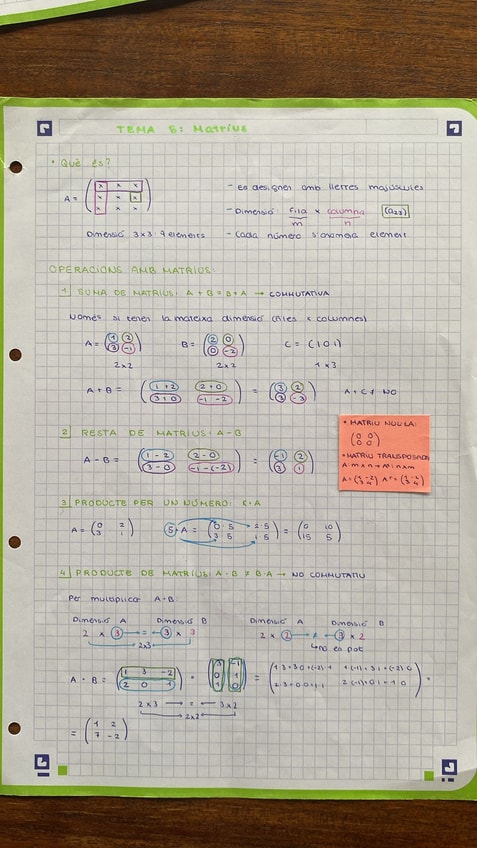 TEMA 5: Matrius
• Què és?
A = ( x x x
x x x
x x x )
Dimensió 3x3: 9 elements
- Es designen amb lletres majúscules
- Dimensió: fila x columna (a23)
m n
- Cada número s'anomena element
OPERACIONS AMB MATRIUS:
1 SUMA DE MATRIUS: A + B = B + A → COMMUTATIVA
Només si tenen la mateixa dimensió (files x columnes)
A = ( 1 2
3 -1 )
2x2
B = ( 2 0
0 -2 )
2x2
C = ( 1 0 1 )
1 x 3
A + B = ( 1 + 2 2 + 0
3 + 0 -1 - 2 ) = ( 3 2
3 -3 )
A + C ≠ NO
2 RESTA DE MATRIUS: A - B
A - B = ( 1 - 2 2 - 0
3 - 0 -1 - (-2) ) = ( -1 2
3 1 )
• MATRIU NUL·LA:
( 0 0
0 0 )
• MATRIU TRANSPOSADA
A m x n → A^t n x m
3 PRODUCTE PER UN NÚMERO: K · A
A = ( 0 2
3 1 )
5 · A = ( 0·5 2·5
3·5 1·5 ) = ( 0 10
15 5 )
4 PRODUCTE DE MATRIUS: A · B ≠ B · A → NO COMMUTATIU
Per multiplicar A · B:
Dimensió A Dimensió B
2 x 3 → = ← 3 x 3
2x3
Dimensió A Dimensió B
2 x 2 → ≠ ← 3 x 2
↳ no es pot
A · B = ( 1 3 -2
2 0 1 ) · ( 3 -1
0 1
1 0 ) = ( 1·3 + 3·0 + (-2)·1 1·(-1) + 3·1 + (-2)·0
2·3 + 0·0 + 1·1 2·(-1) + 0·1 + 1·0 ) =
2x3 → = ← 3x2
2x2
= ( 1 2
7 -2 )